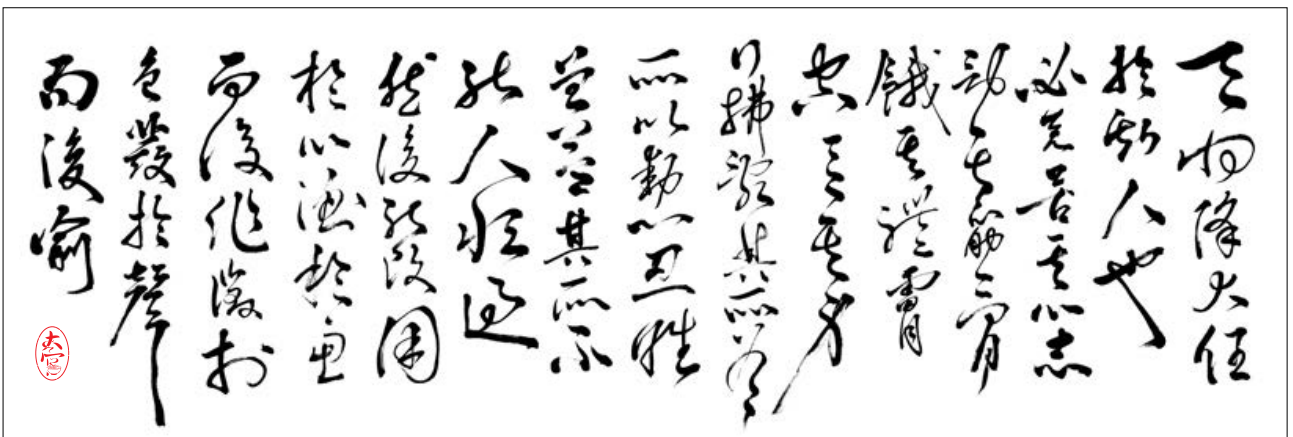 天將降大任
於斯人也
必先苦其心志
勞其筋骨
餓其體膚
空乏其身
行拂亂其所為
所以動心忍性
曾益其所不
能人恒過
然後能改困
於心衡於慮
而後作徵於
色發於聲
而後喻